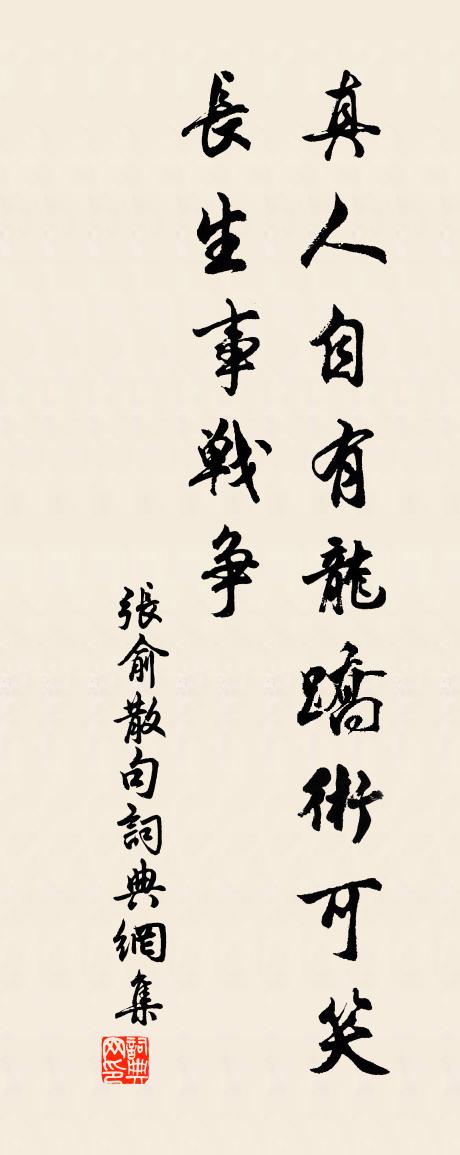 真人自有龍蹻術可笑
長生事戰争
張俞散句詞典網集
詞典网印